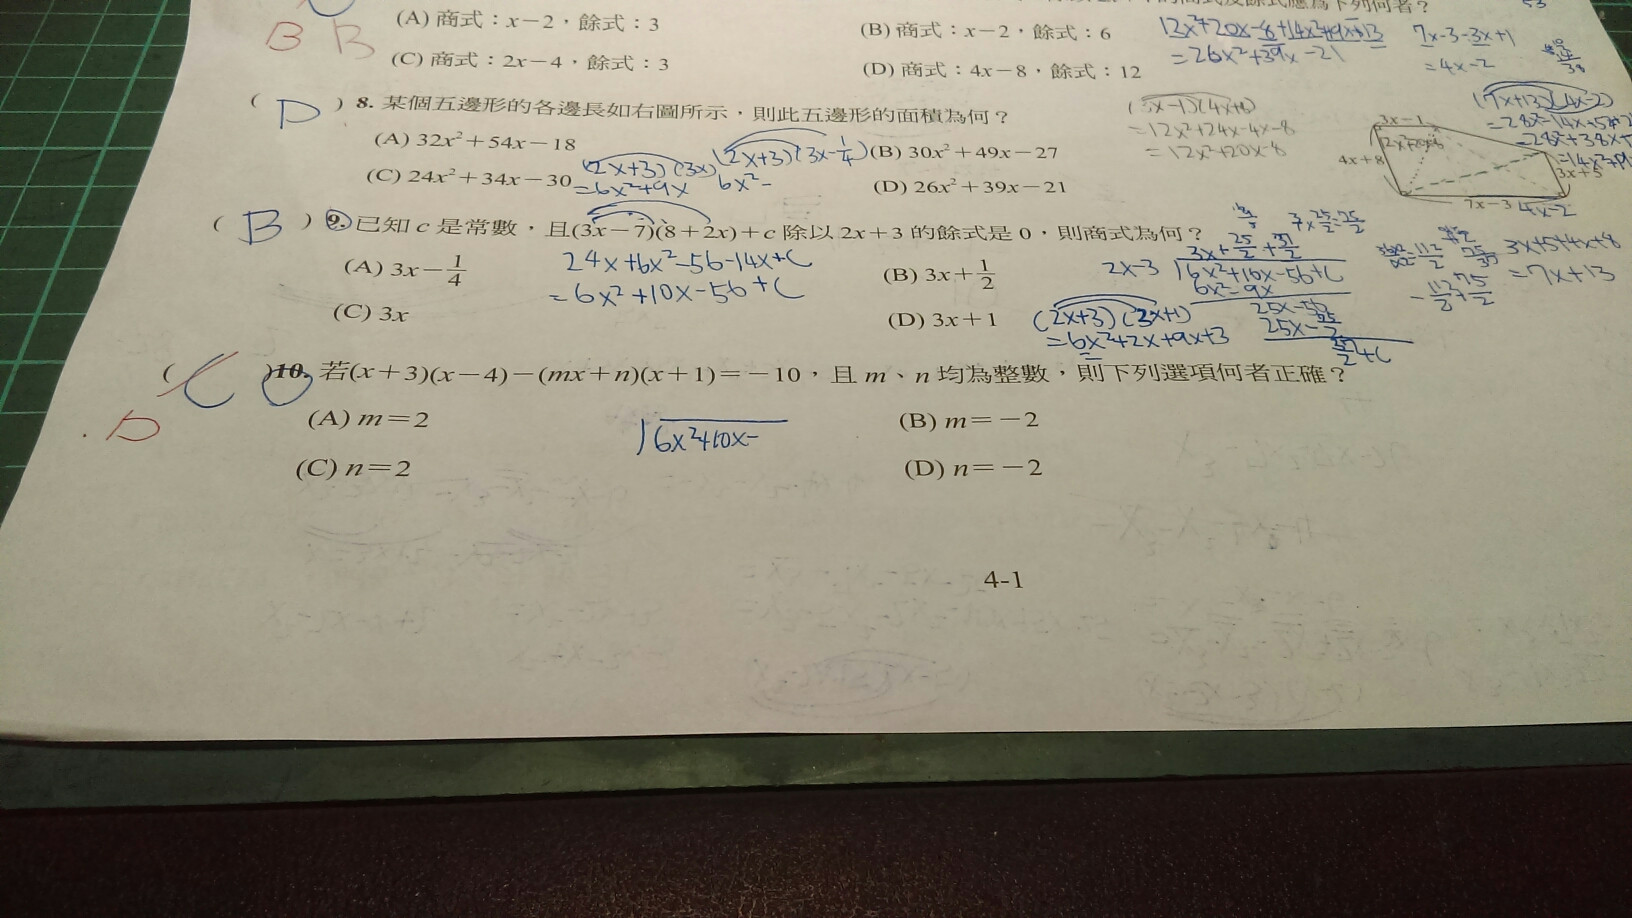 下列何者？
(A) 商式：x－2，餘式：3
(B) 商式：x－2，餘式：6
(C) 商式：2x－4，餘式：3
(D) 商式：4x－8，餘式：12
B B
12x²+20x-8+14x²+19x-13
=26x²+39x-21
7x-3-3x+1
=4x-2
( D ) 8. 某個五邊形的各邊長如右圖所示，則此五邊形的面積為何？
(A) 32x²＋54x－18
(B) 30x²＋49x－27
(C) 24x²＋34x－30
(D) 26x²＋39x－21
(2x+3)(3x)
=6x²+9x
(2x+3)(3x-1/4)
6x²-
(3x-1)(4x+8)
=12x²+24x-4x-8
=12x²+20x-8
(7x+13)(4x-2)
3x－1
4x＋8
3x＋5
7x－3
4x-2
( B ) 9. 已知 c 是常數，且(3x－7)(8＋2x)＋c 除以 2x＋3 的餘式是 0，則商式為何？
(A) 3x－1/4
(B) 3x＋1/2
(C) 3x
(D) 3x＋1
24x+6x²-56-14x+c
=6x²+10x-56+c
3x+25/2
2x-3
6x²+10x-56+c
6x²-9x
25x-56
3x+5+4x+8
=7x+13
(2x+3)(3x+1)
=6x²+2x+9x+3
( C ) 10. 若(x＋3)(x－4)－(mx＋n)(x＋1)＝－10，且 m、n 均為整數，則下列選項何者正確？
D
(A) m＝2
(B) m＝－2
(C) n＝2
(D) n＝－2
6x²+10x-
4-1